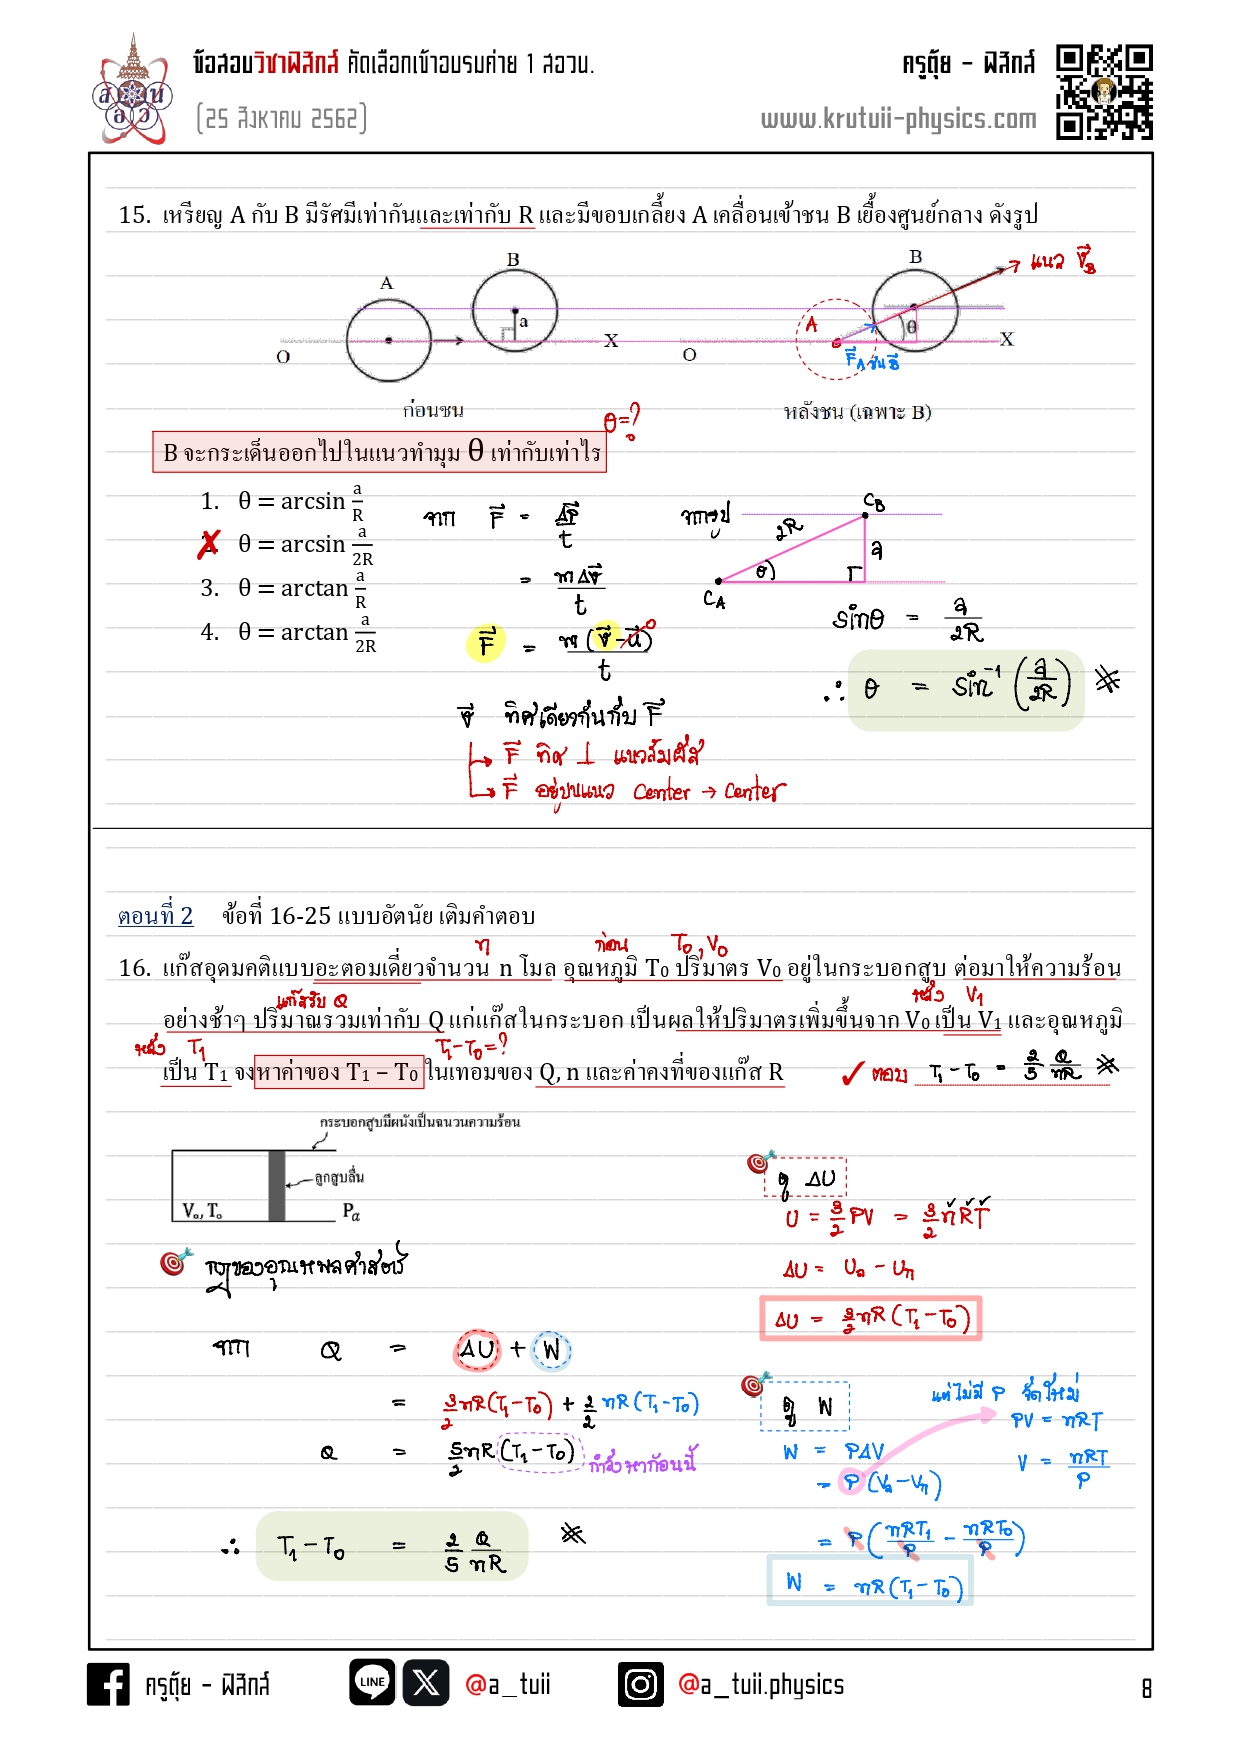 ข้อสอบวิชาฟิสิกส์ คัดเลือกเข้าอบรมค่าย 1 สอวน.
(25 สิงหาคม 2562)
ครูตุ้ย - ฟิสิกส์
www.krutuii-physics.com
15. เหรียญ A กับ B มีรัศมีเท่ากันและเท่ากับ R และมีขอบเกลี้ยง A เคลื่อนเข้าชน B เยื้องศูนย์กลาง ดังรูป
A B a O X
ก่อนชน
A B θ O X
แนว v⃗B
F⃗A ชน B
หลังชน (เฉพาะ B)
θ=?
B จะกระเด็นออกไปในแนวทำมุม θ เท่ากับเท่าไร
1. θ = arcsin a/R
2. θ = arcsin a/2R
3. θ = arctan a/R
4. θ = arctan a/2R
จาก F⃗ = ΔP⃗/t
= mΔv⃗/t
F⃗ = m(v⃗-u⃗)/t
0
v⃗ ทิศเดียวกันกับ F⃗
F⃗ ทิศ ⊥ แนวสัมผัส
F⃗ อยู่บนแนว Center → Center
จากรูป
CA CB 2R a θ
sinθ = a/2R
∴ θ = sin⁻¹(a/2R)
ตอนที่ 2 ข้อที่ 16-25 แบบอัตนัย เติมคำตอบ
n ก่อน T₀, V₀
16. แก๊สอุดมคติแบบอะตอมเดี่ยวจำนวน n โมล อุณหภูมิ T₀ ปริมาตร V₀ อยู่ในกระบอกสูบ ต่อมาให้ความร้อน
แก๊สรับ Q หลัง V₁
อย่างช้าๆ ปริมาณรวมเท่ากับ Q แก่แก๊สในกระบอก เป็นผลให้ปริมาตรเพิ่มขึ้นจาก V₀ เป็น V₁ และอุณหภูมิ
หลัง T₁ T₁-T₀=?
เป็น T₁ จงหาค่าของ T₁ – T₀ ในเทอมของ Q, n และค่าคงที่ของแก๊ส R
✓ ตอบ T₁-T₀ = 2/5 Q/nR
กระบอกสูบมีผนังเป็นฉนวนความร้อน
ลูกสูบลื่น
V₀, T₀ Pa
กฎของอุณหพลศาสตร์
จาก Q = ΔU + W
= 3/2 nR(T₁-T₀) + 2/2 nR(T₁-T₀)
Q = 5/2 nR(T₁-T₀) กำลังหาก้อนนี้
∴ T₁-T₀ = 2/5 Q/nR
ดู ΔU
U = 3/2 PV = 3/2 nRT
ΔU = U₂ - U₁
ΔU = 3/2 nR(T₁-T₀)
ดู W
แต่ไม่มี P จัดใหม่
PV = nRT
V = nRT/P
W = PΔV
= P(V₂-V₁)
= P(nRT₁/P - nRT₀/P)
W = nR(T₁-T₀)
ครูตุ้ย - ฟิสิกส์
LINE
@a_tuii
@a_tuii.physics
8